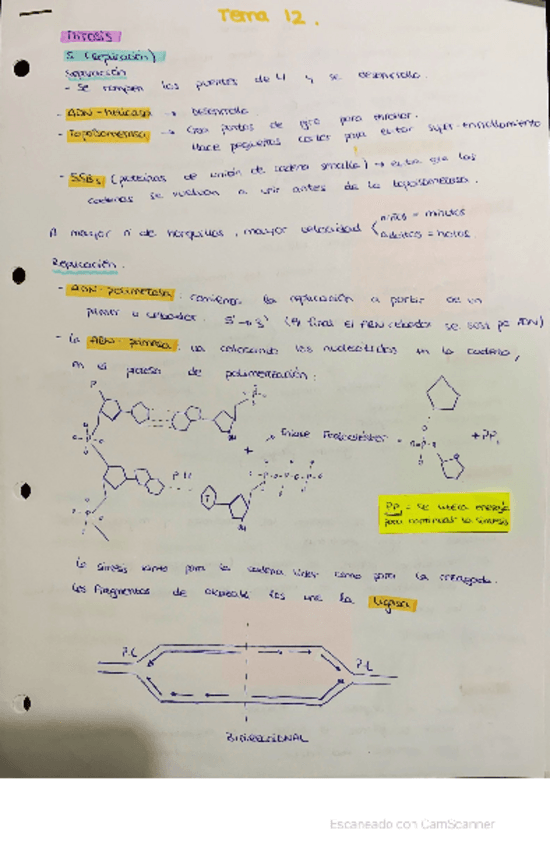 Tema 12.
Mitosis
S (Replicación)
Separación
- Se rompen los puentes de H y se desenrolla.
- ADN-helicasa → Desenrolla
- Topoisomerasa → Crea puntos de giro para
Hace pequeños cortes para evitar super-enrollamiento
- SSBs (proteínas de unión de cadena sencilla) → evita que las
cadenas se vuelvan a unir antes de la topoisomerasa.
A mayor nº de horquillas, mayor velocidad
niños = minutos
Adultos = horas.
Replicación.
- ADN-polimerasa: comienza la replicación a partir de un
primer o cebador. 5'→3' (al final el ARN cebador se sust. por ADN)
- La ARN-primasa: va colocando los nucleótidos en la cadena,
en el proceso de polimerización:
P
P.H
+
T
Enlace Fosfodiéster =
+ PPi
PPi = Se libera energía
para nominal la síntesis
La síntesis tanto para la cadena líder como para la rezagada.
Los fragmentos de okazaki los une la ligasa
P.L
P.L
BIDIRECCIONAL
Escaneado con CamScanner